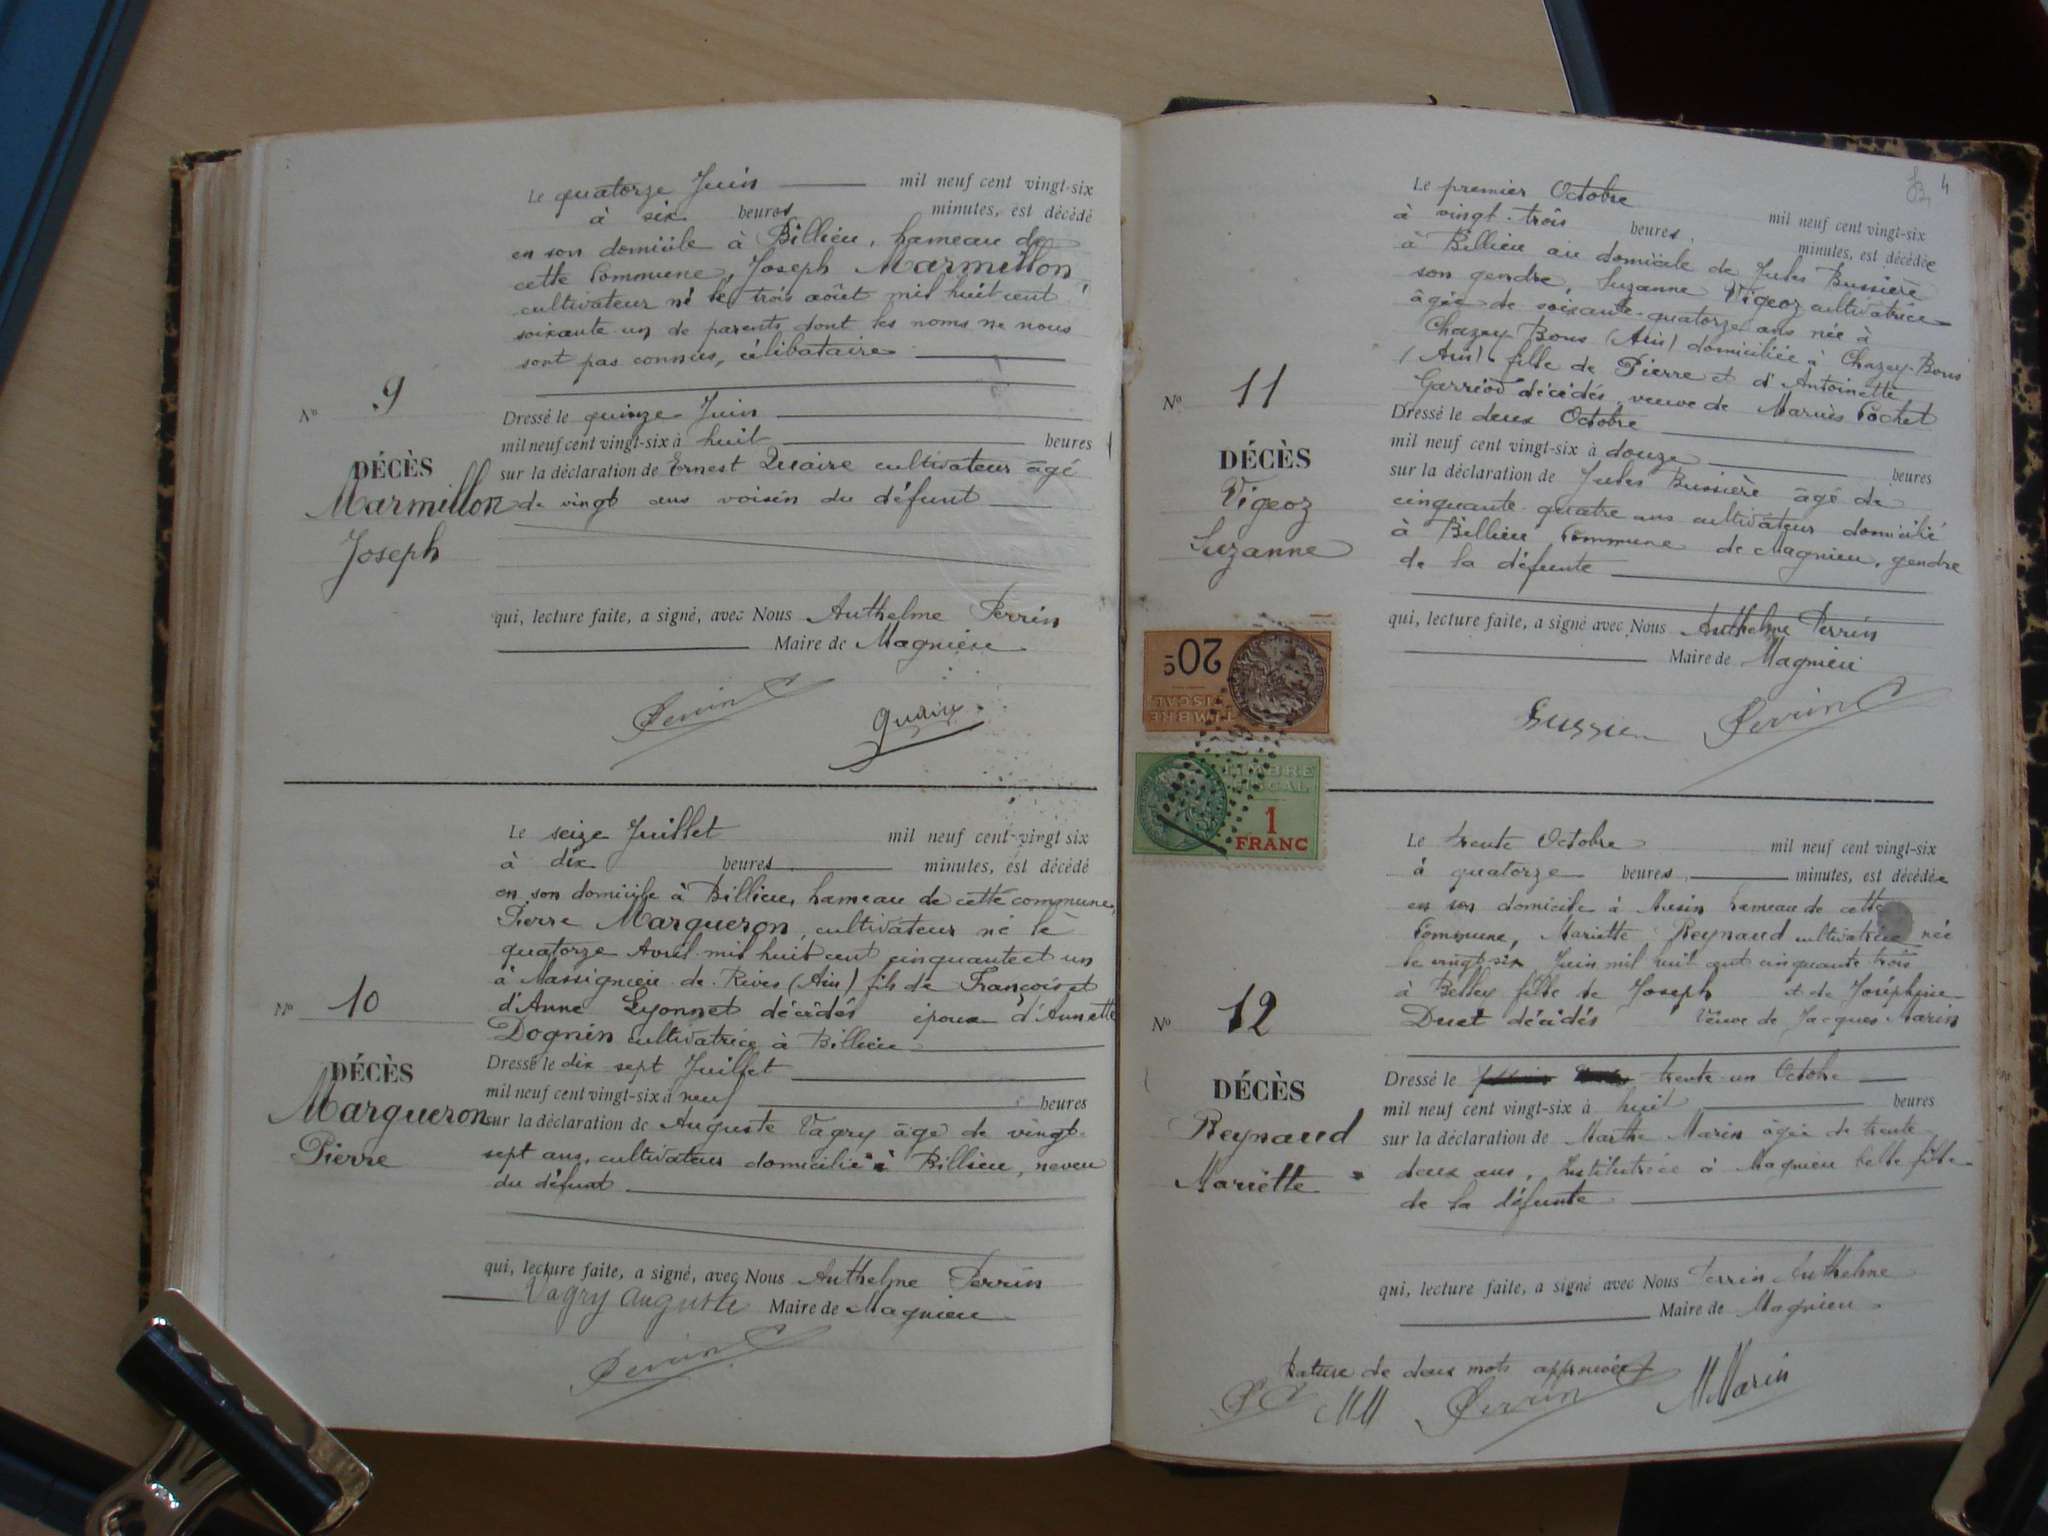 Le quatorze Juin mil neuf cent vingt-six
à six heures minutes, est décédé
en son domicile à Billieu, hameau de
cette Commune, Joseph Marmillon
cultivateur né le trois août mil huit cent
soixante un de parents dont les noms ne nous
sont pas connus, célibataire
N° 9
Dressé le quinze Juin
mil neuf cent vingt-six à huit heures
DÉCÈS
sur la déclaration de Ernest Quaire cultivateur âgé
Marmillon
de vingt ans voisin du défunt
Joseph
qui, lecture faite, a signé, avec Nous Anthelme Perrin
Maire de Magnieu
Perrin
Le seize Juillet mil neuf cent vingt six
à dix heures minutes, est décédé
en son domicile à Billieu, hameau de cette commune,
Pierre Marqueron, cultivateur né le
quatorze Avril mil huit cent cinquante et un
à Massignieu de Rives (Ain) fils de François et
d'Anne Lyonnet décédés époux d'Annette
N° 10
Dognin cultivatrice à Billieu
Dressé le dix sept Juillet
DÉCÈS
mil neuf cent vingt-six à neuf heures
Marqueron
sur la déclaration de Auguste Vagry âgé de vingt-
Pierre
sept ans, cultivateur domicilié à Billieu, neveu
du défunt
qui, lecture faite, a signé, avec Nous Anthelme Perrin
Vagry Auguste Maire de Magnieu
Perrin
4
Le premier Octobre mil neuf cent vingt-six
à vingt-trois heures minutes, est décédée
à Billieu au domicile de Jules Bussière
son gendre, Suzanne Vigeoz cultivatrice
âgée de soixante-quatorze ans née à
Chazey Bons (Ain) domiciliée à Chazey-Bons
(Ain) fille de Pierre et d'Antoinette
Garriod décédés, veuve de Marius Pochet
N° 11
Dressé le deux Octobre
mil neuf cent vingt-six à douze heures
DÉCÈS
sur la déclaration de Jules Bussière âgé de
Vigeoz
cinquante-quatre ans cultivateur domicilié
Suzanne
à Billieu Commune de Magnieu, gendre
de la défunte
qui, lecture faite, a signé avec Nous Anthelme Perrin
Maire de Magnieu
Perrin
20c
TIMBRE
FISCAL
TIMBRE
FISCAL
1
FRANC
Le trente Octobre mil neuf cent vingt-six
à quatorze heures minutes, est décédée
en son domicile à Musin hameau de cette
Commune, Mariette Reynaud cultivatrice née
le vingt-six Juin mil huit cent cinquante trois
à Belley fille de Joseph et de Joséphine
N° 12
Duet décédés Veuve de Jacques Marin
Dressé le trente-un Octobre
DÉCÈS
mil neuf cent vingt-six à huit heures
Reynaud
sur la déclaration de Marthe Marin âgée de trente
Mariette
deux ans, Institutrice à Magnieu belle fille
de la défunte
qui, lecture faite, a signé avec Nous Perrin Anthelme
Maire de Magnieu
Rature de deux mots approuvée
MM Perrin MMarin